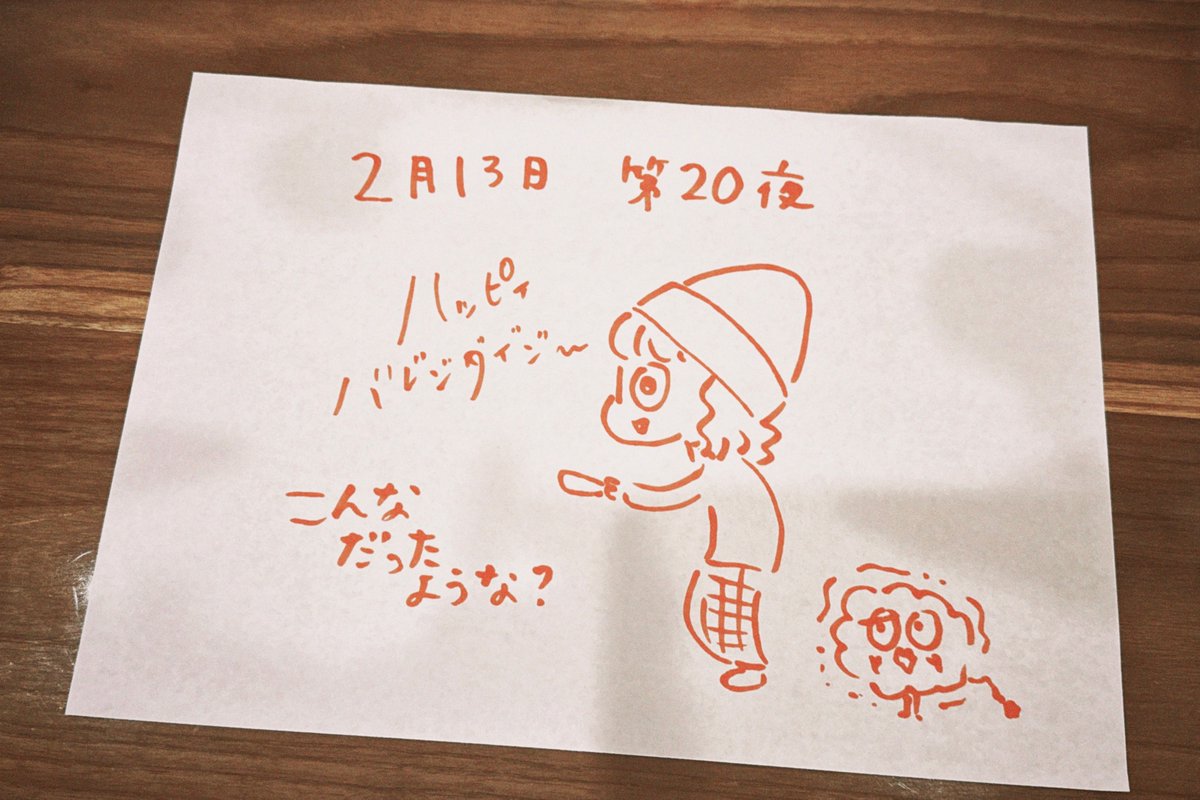 2月13日 第20夜
ハッピィ
バレンダイジ〜
こんな
だった
ような?